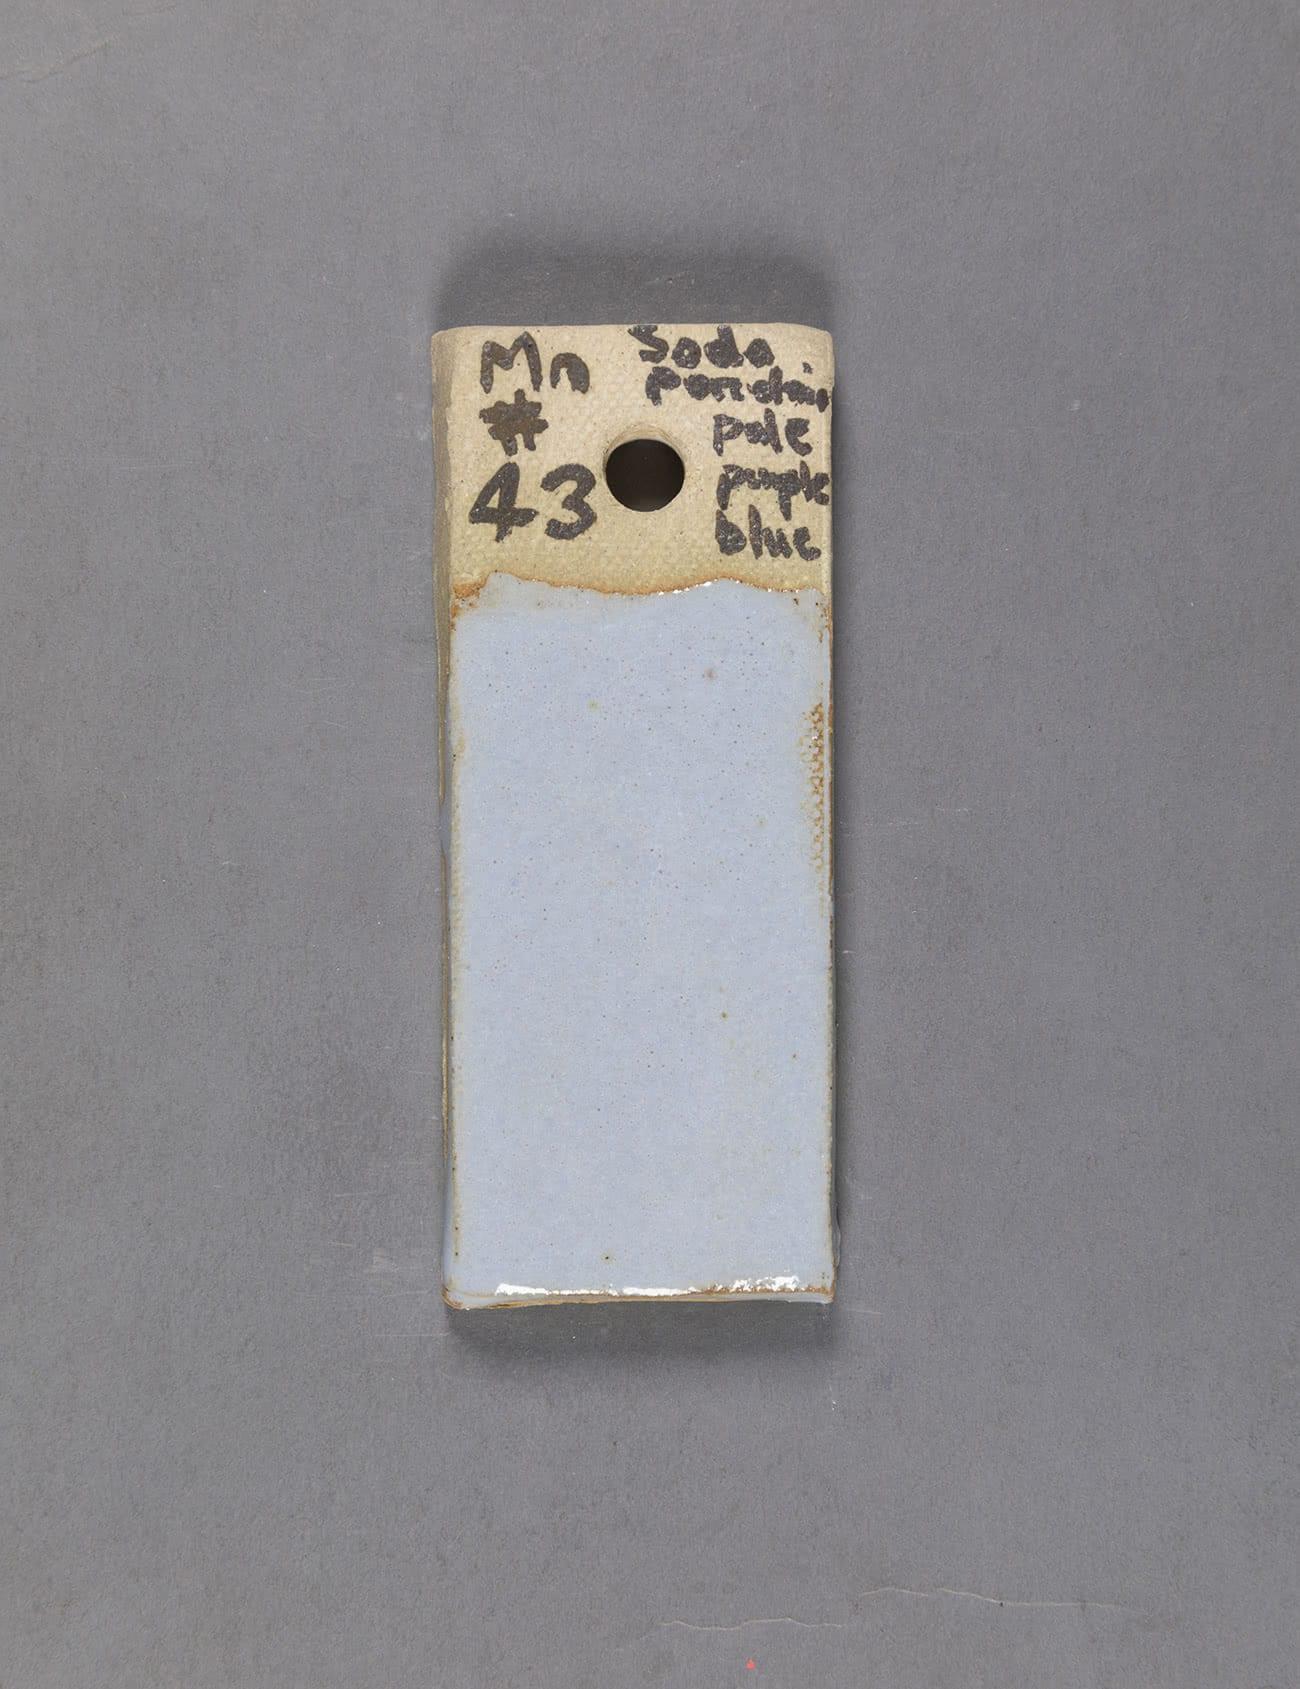 Mn
#
43
Soda
porcelain
pale
purple
blue